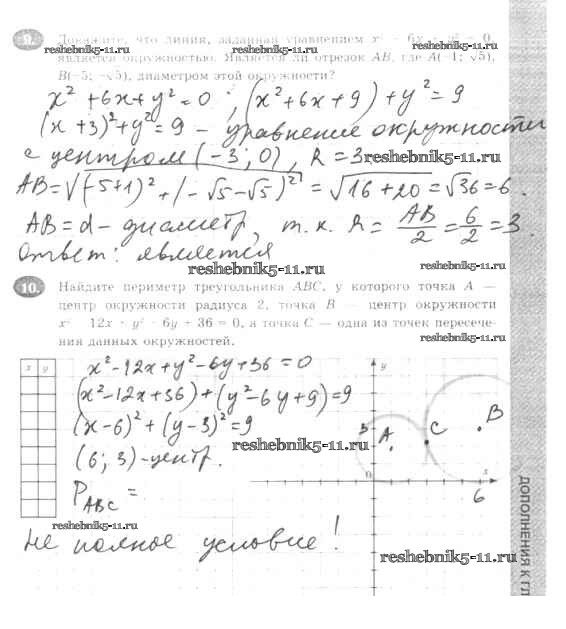 9. Докажите, что линия, заданная уравнением x² + 6x + y² = 0,
является окружностью. Является ли отрезок AB, где A(−1; √5),
B(−5; −√5), диаметром этой окружности?
reshebnik5-11.ru reshebnik5-11.ru
x² + 6x + y² = 0 ; (x² + 6x + 9) + y² = 9
(x + 3)² + y² = 9 – уравнение окружности
с центром (-3; 0), R = 3
reshebnik5-11.ru
AB = √(-5+1)² + (-√5-√5)² = √16+20 = √36 = 6.
AB = d – диаметр, т.к. R = AB/2 = 6/2 = 3.
Ответ: является
reshebnik5-11.ru
10. Найдите периметр треугольника ABC, у которого точка A —
центр окружности радиуса 2, точка B — центр окружности
x² 12x + y² 6y + 36 = 0, а точка C — одна из точек пересече-
ния данных окружностей.
reshebnik5-11.ru
x y
x² - 12x + y² - 6y + 36 = 0
(x² - 12x + 36) + (y² - 6y + 9) = 9
(x - 6)² + (y - 3)² = 9
reshebnik5-11.ru
(6; 3) - центр.
P ABC =
y
3 A C B
0 x
6
reshebnik5-11.ru
Не полное условие!
reshebnik5-11.ru
ДОПОЛНЕНИЯ К ГЛ